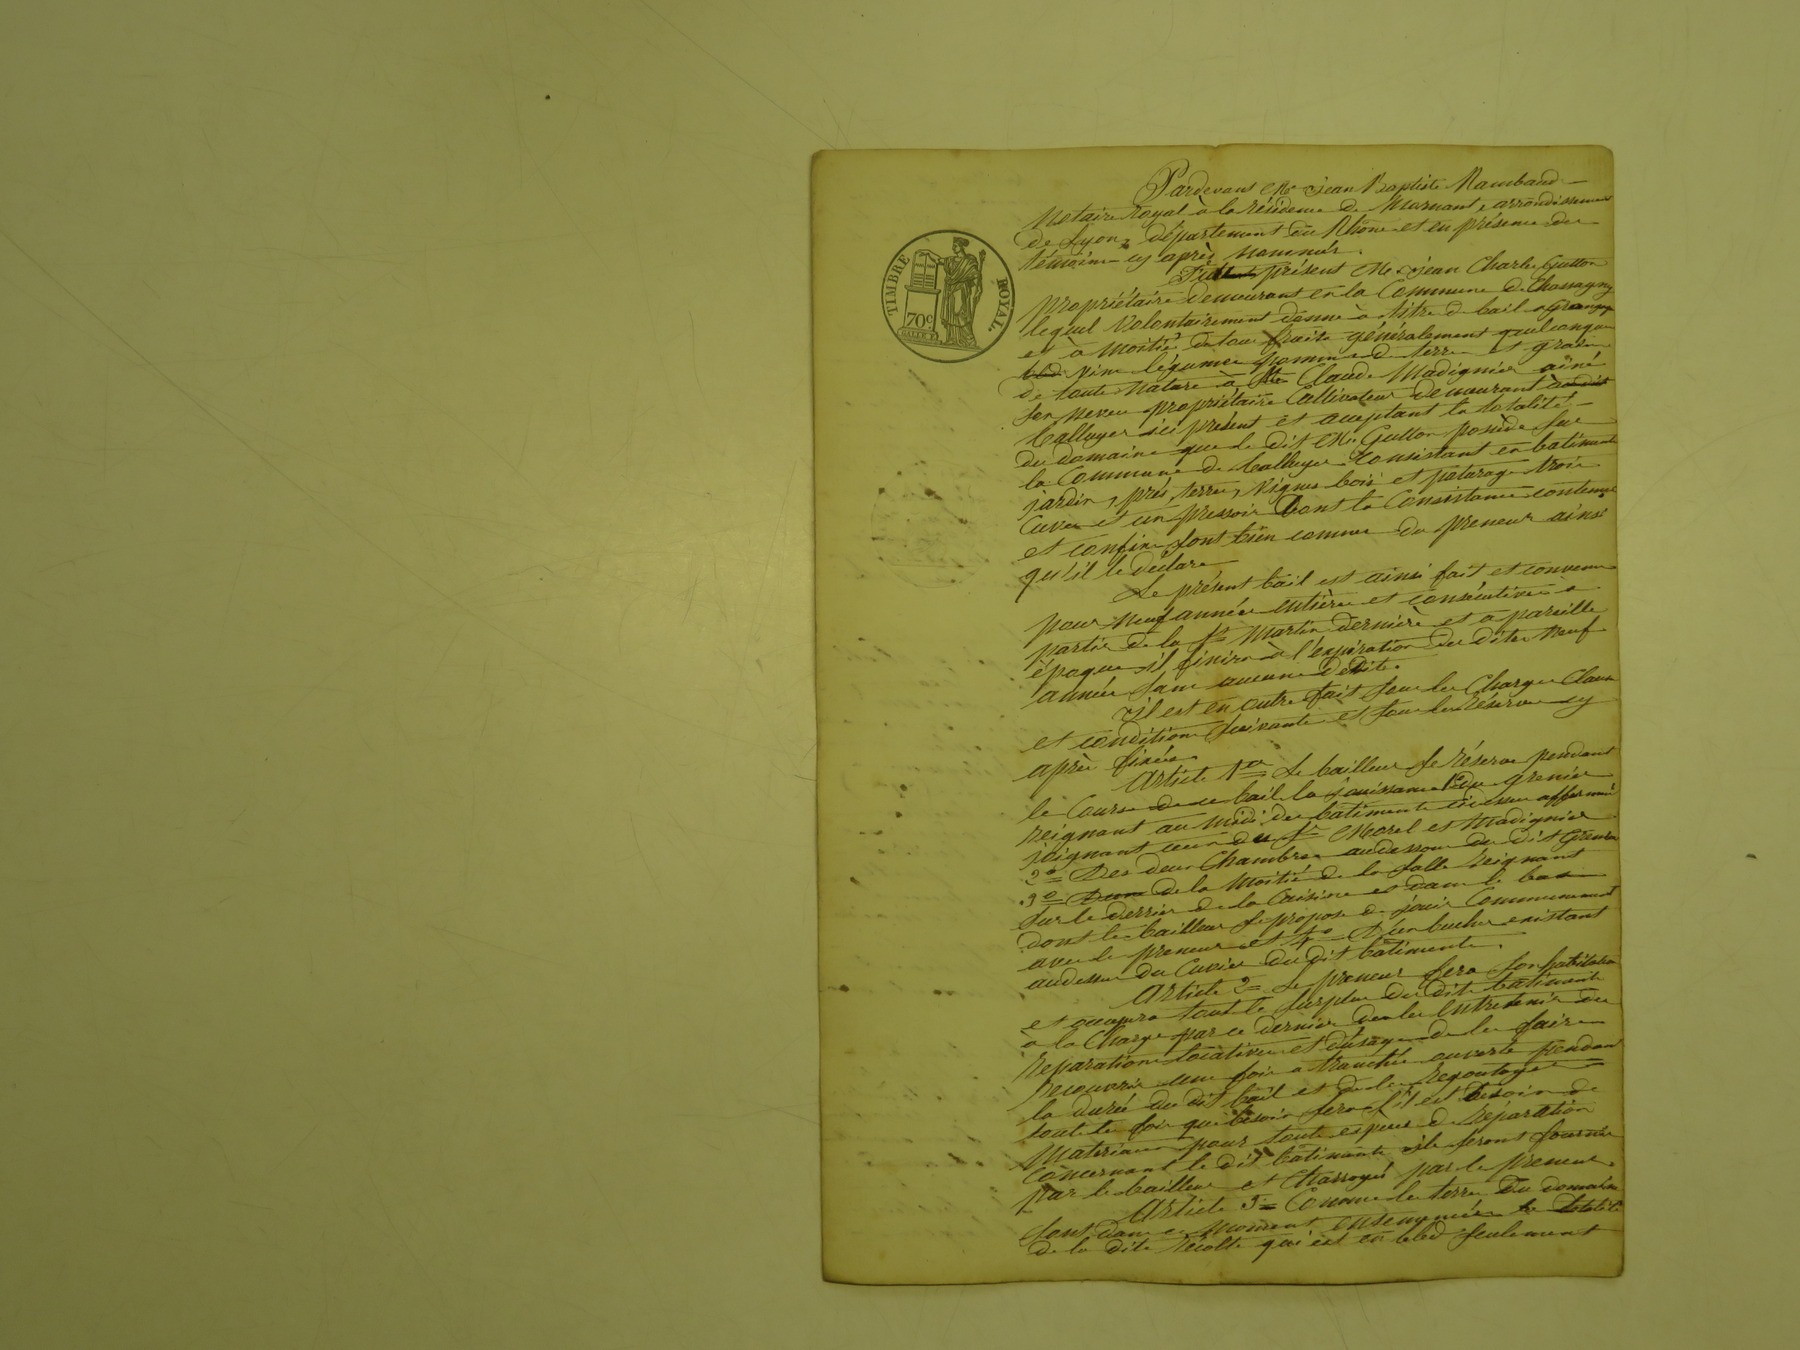 TIMBRE ROYAL.
70c
Pardevant Me Jean Baptiste Rambaud
Notaire royal à la résidence de Mornant, arrondissement
de Lyon, département du Rhône et en présence des
témoins cy après nommés.
présent Mr Jean Charles Gutton
propriétaire demeurant en la Commune de Chassagny
lequel volontairement donne à titre de bail a grange
et à moitié de tous fruits généralement quelconques
bled vin légumes pommes de terre et grains
de toute nature à Claude Madignier ainé
son neveu propriétaire Cultivateur demeurant
ici présent et acceptant la totalité
du domaine que le dit Mr Gutton possède sur
la Commune de consistant en batiments
jardin, prés, terres, vignes bois et paturage trois
Cuves et un pressoir Dont la Consistance contenue
et confins sont bien connus du preneur ainsi
qu'il le déclare
Le présent bail est ainsi fait et convenu
pour neuf années entières et consécutives à
partir de la St Martin dernière et a pareille
époque il finira à l'expiration des dites neuf
années sans aucune dédite.
Il est en outre fait sous les Charges Clauses
et conditions suivantes et sous les réserves cy
après fixées
Article 1er Le bailleur se réserve pendant
le Cours de ce bail la jouissance 1º du grenier
reignant au midi des batiments affermés
joignant ceux du Sr Morel et Madignier
2º Des deux Chambres audessous du dit Grenier
3º de la moitié de la salle reignant
sur le derrier de la Cuisine et dans le bas
dont le bailleur se propose de jouir Communement
avec le preneur et 4º D'un bucher existant
audessus du Cuvier du dit batiments.
Article 2= Le preneur fera son habitation
et occupera tout le surplus des dits batiments
à la Charge par ce dernier de les Entretenir des
Réparations locatives et d'usage de les faire
recouvrir une fois a tranchée ouverte pendant
la durée du dit bail et de les
toute les fois que besoin sera s'il est Besoin de
Materiaux pour toute espèces de réparation
Concernant le dit batiments ils seront fournis
par le bailleur et Charroyés par le preneur.
Article 3= Comme les terres Du domaine
sont dans ce moment ensemencées la totalité
de la dite récolte qui est en bled seulement